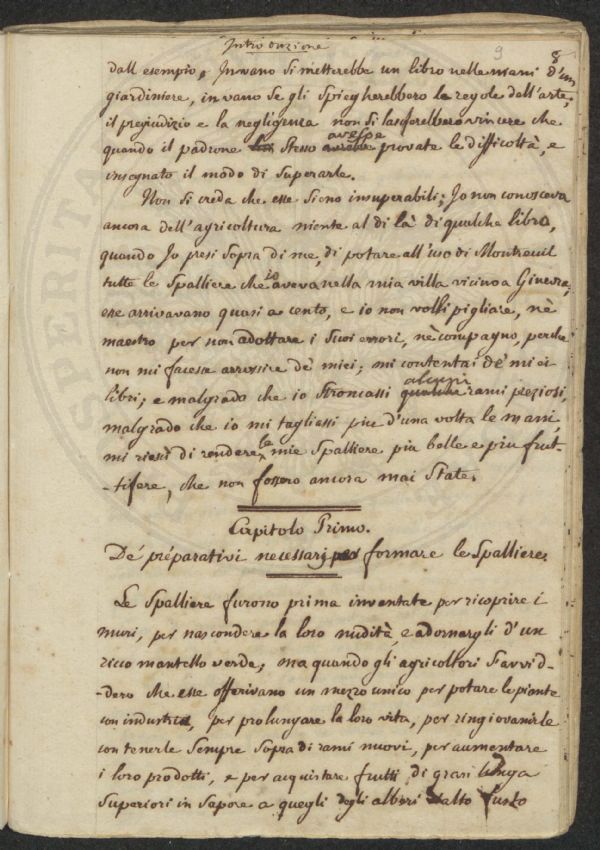 Introduzione
9
8
dall esempio, Invano si metterebbe un libro nelle mani d'un
giardiniere, in vano se gli spiegherebbero le regole dell'arte;
il prejudizio e la negligenza non si lascerebbero vincere che
quando il padrone stesso avesse provate le difficoltà, e
insegnato il modo di superarle.
Non si creda che esse sieno insuperabili; Io non conosceva
ancora dell'agricoltura niente al di là di qualche libro,
quando Io presi sopra di me, di potare all'uso di Montreuil
tutte le Spalliere che io aveva nella mia villa vicino a Ginevra,
esse arrivavano quasi a cento, e io non volli pigliare, nè
maestro per non adottare i suoi errori, nè compagno, perche
non mi facesse arrossire de' miei; mi contentai de' miei
libri; e malgrado che io stroncassi alcuni rami preziosi,
malgrado che io mi tagliassi piu d'una volta le mani,
mi riesci di rendere le mie Spalliere piu belle e piu frut-
-tifere, che non fossero ancora mai state.
Capitolo Primo.
De' préparativi necessarj per formare le Spalliere.
Le Spalliere furono prima inventate per ricoprire i
muri, per nascondere la loro nudità e adornargli d'un
ricco mantello verde; ma quando gli agricoltori s'avvid-
-dero che esse offerivano un mezzo unico per potare le piante
con industria, per prolungare la loro vita, per ringiovanirle
con tenerle sempre sopra di rami nuovi, per aumentare
i loro prodotti, e per acquistare frutti di gran lunga
Superiori in sapore a quegli degli alberi d'alto fusto